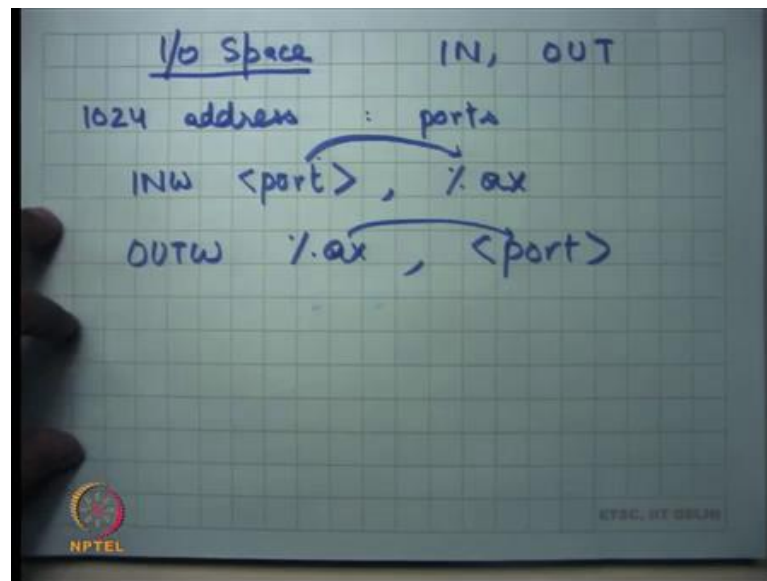 I/O Space IN, OUT
1024 address : ports
INW <port> , %ax
OUTW %ax , <port>
ETSC, IIT DELHI
NPTEL